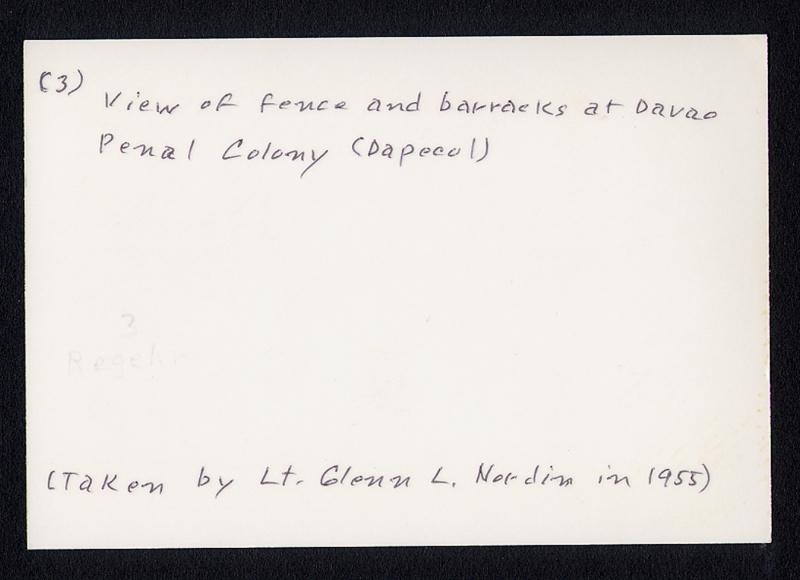 (3)
View of fence and barracks at Davao
Penal Colony (Dapecol)
3
Regehr
(Taken by Lt. Glenn L. Nordin in 1955)